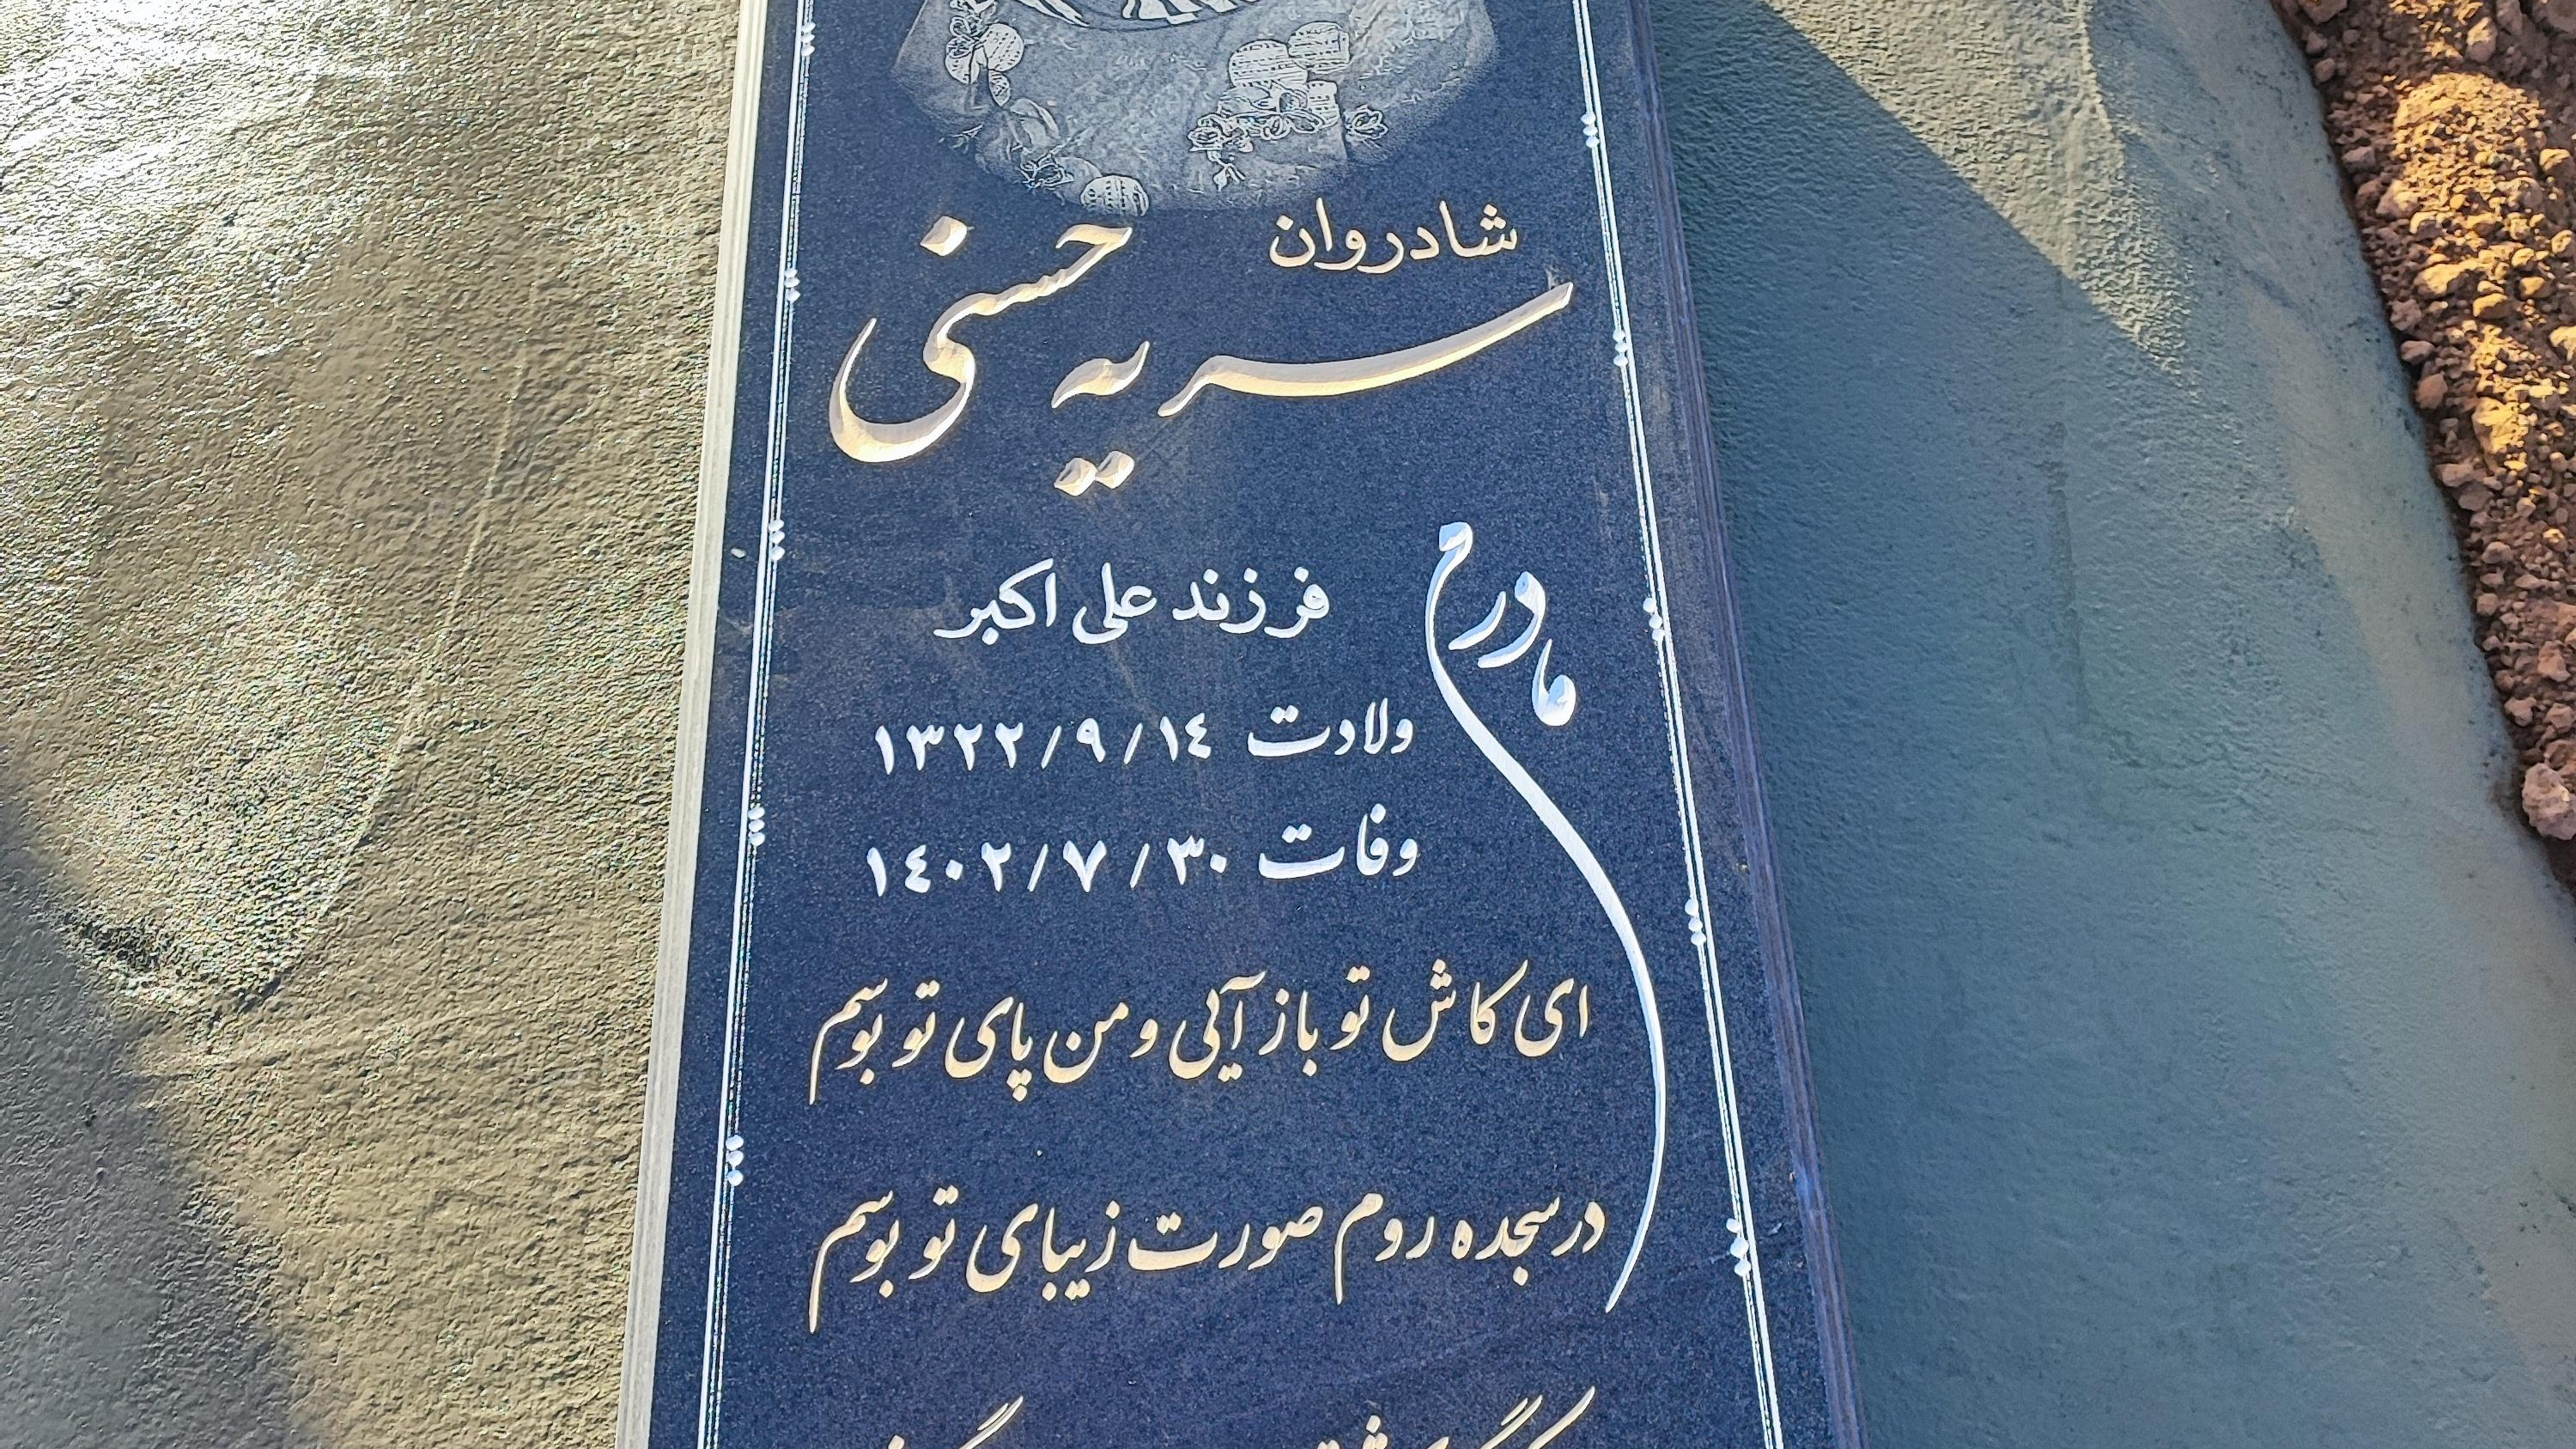 شادروان
سریه حسنی
مادرم
فرزند علی اکبر
ولادت ۱۳۲۲/۹/۱۴
وفات ۱۴۰۲/۷/۳۰
ای کاش تو باز آئی و من پای تو بوسم
در سجده روم صورت زیبای تو بوسم